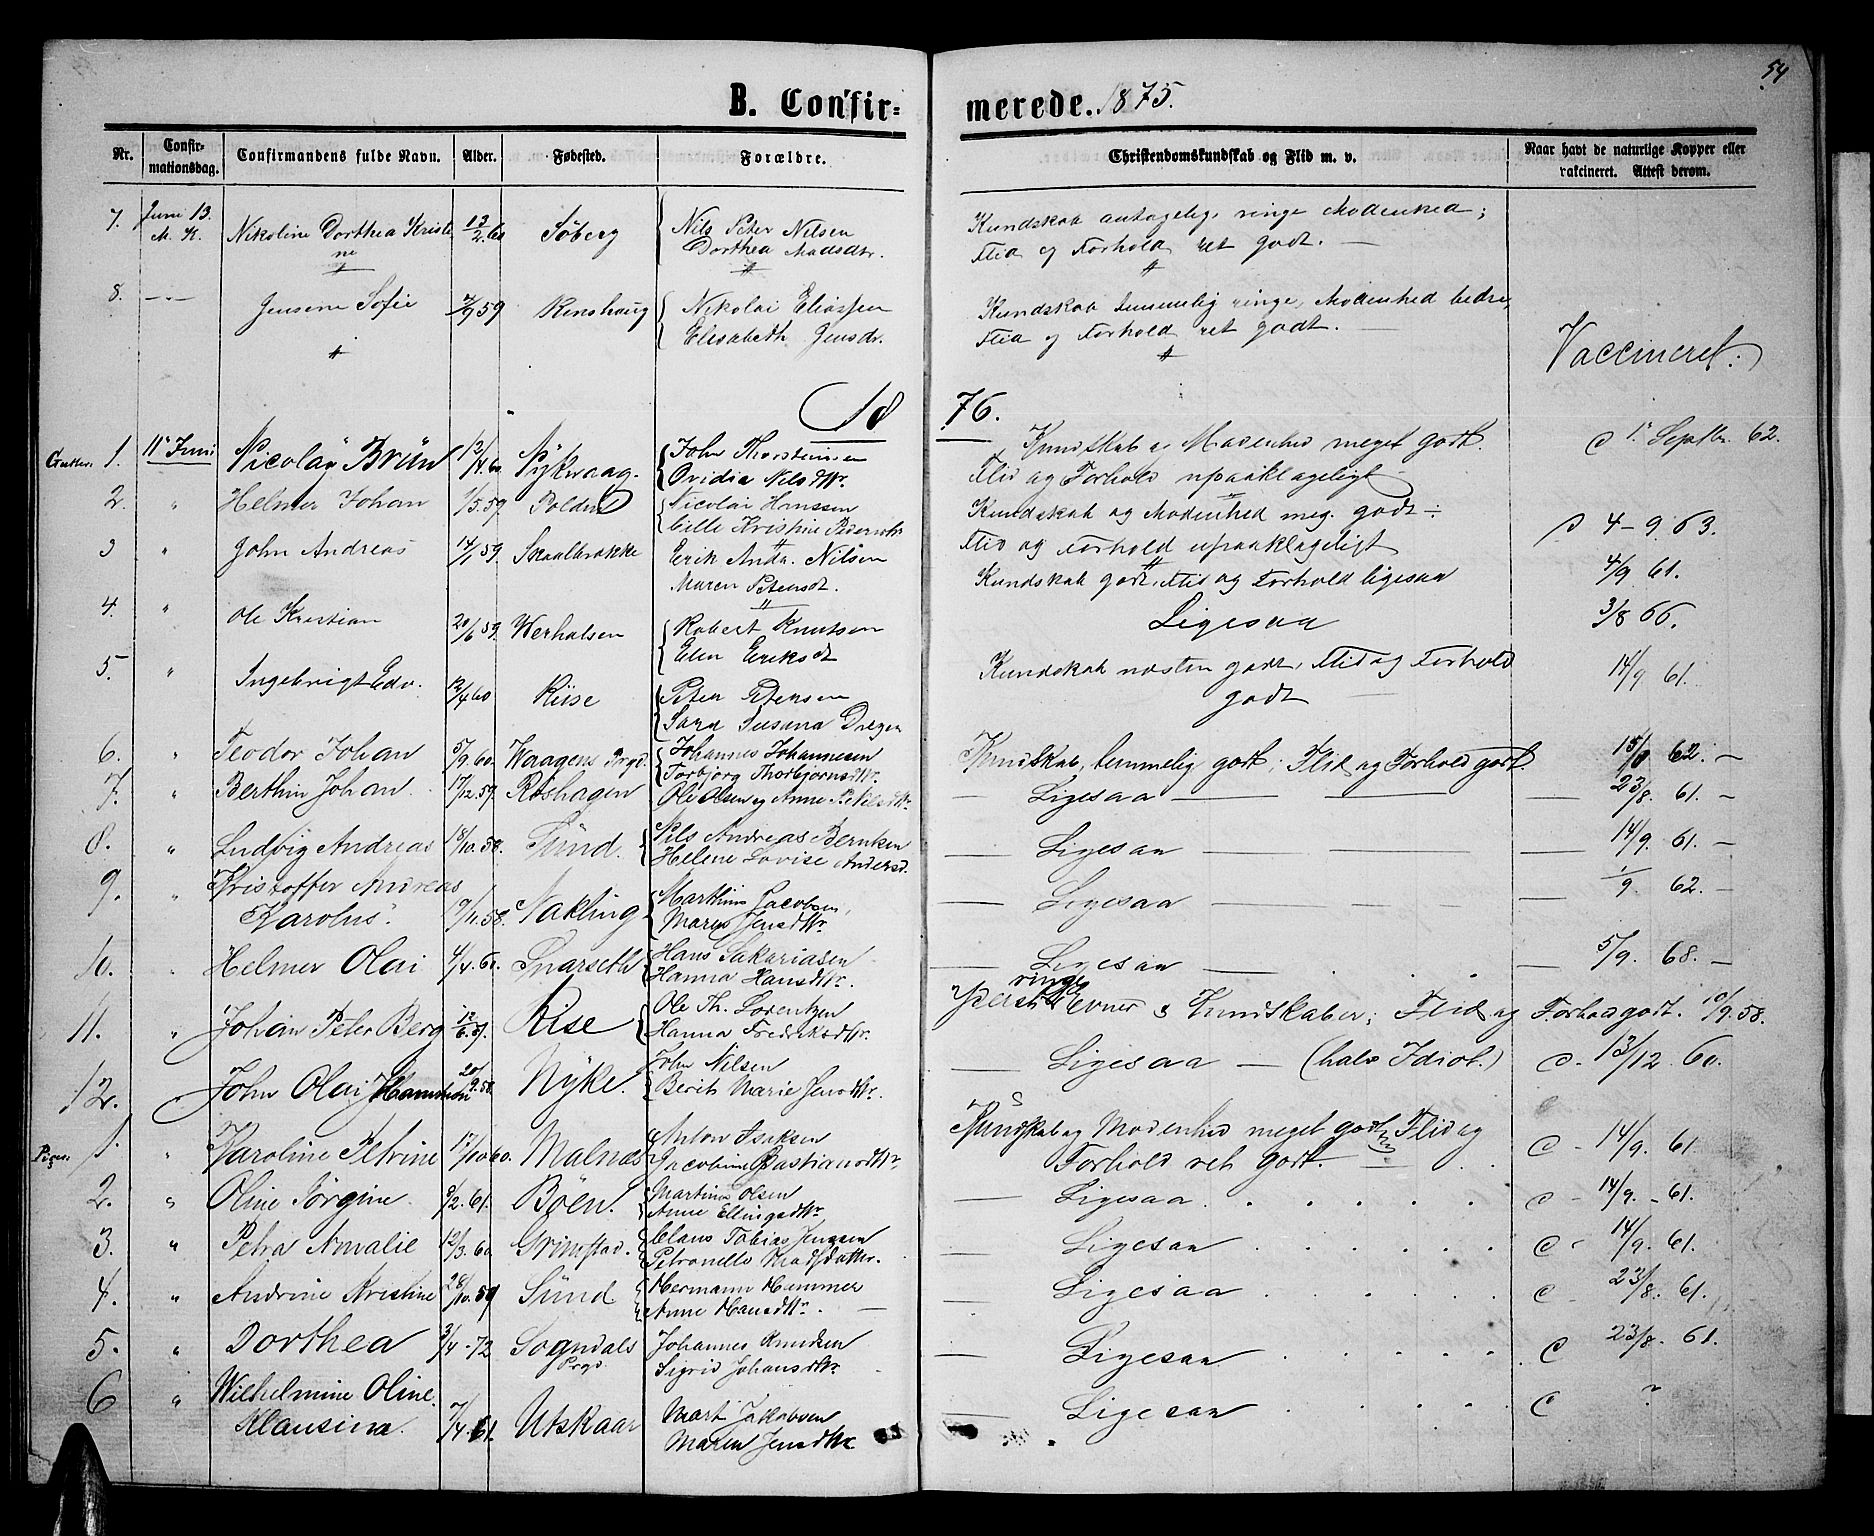 54
B. Confirmerede. 1875.
Nr. Confirmationsdag. Confirmandens fulde Navn. Alder. Fødested. Forældre. Christendomskundskab og Flid m. v. Naar havt de naturlige Kopper eller vakcineret. Attest derom.
7. Juni 13. M. K. Nikoline Dorthea Kristine 12/2.60 Søberg Nils Peter Nilsen Kundskab antagelig, ringe Modenhed;
Dorthea Madsdtr. Flid og Forhold ret godt. —
8. — „ — Jensine Sofie 7/9 59 Renshaug Nikolai Eliassen Kundskab temmelig ringe, Modenhed bedre,
Elisabeth Jensdr. Flid og Forhold ret godt. —
Vaccineret.
1876.
Gutter. 1. 11te Juni Nicolay Brün 12/4.60 Nykvaag. John Thorsteinsen Kundskab og Modenhed meget godt. c 1. Septbr. 62.
Ovidia Nilsdtr. Flid og Forhold upaaklageligt
2. „ Helmer Johan 1/5.59. Polden Nicolai Hanssen Kundskab og Modenhed meg. godt
Cille Kristine Pedersdtr. Flid og Forhold upaaklageligt c 4-9 63.
3 „ John Andreas 14/1 59. Skaalbrække Erik Andr. Nilsen Kundskab godt, Flid og Forhold ligesaa 4/9 61.
Maren Petersdt.
4. „ Ole Kristian 20/6 59. Werhalsen Robert Knutsen Ligesaa 3/8 66.
Elen Eriksdt
5. „ Ingebrigt Edv. 12/4 60 Riise Peter Petersen Kundskab næsten godt, Flid og Forhold godt 14/9 61.
Sara Susana Dreyer
6. „ Teodor Johan 5/9.60. Waagens Prgd. Johannes Johannesen Kundskab, temmelig godt; Flid og Forhold godt. 15/8 62. —
Torbjørg Thorbjørnsdtr.
7. „ Berthin Johan. 17/12.59. Røshagen Ole Olsen og Anne P. Nilsdtr. — Ligesaa — 23/8. 61. —
8. „ Ludvig Andreas 18/10.58. Sünd. Nils Andreas Berntsen — Ligesaa — 14/9. 61. —
Helene Lovise Andersd.
9. „ Kristoffer Andreas
Karolus. 9/11.58. Nakling Marthin Jacobsen, — Ligesaa — 1/9 62. —
Maren Jensdtr.
10. „ Helmer Olai 4/4.60. Snarseth Hans Sakariasen — Ligesaa — 5/9. 68. —
Hanna Hansdtr.
11. „ Johan Peter Berg 12/6.57. Rise Ole Th. Lorentzen Yderst ringe Evner & Kundskaber; Flid og Forhold godt. 10/9.58.
Hanna Fredriksdtr.
12. „ John Olai Hammer 20/9.58. Nyke. John Nilsen — Ligesaa — (halv Idiot.) c. 13/12. 60.
Berit Marie Jensdtr.
Piger. 1. „ Karoline Petrine 17/10 60. Malnæs Anton Isaksen Kundskab og Modenhed meget godt; Flid og
Jacobine Bastiansdtr. Forhold ret godt. — c - 14/9. 61.
2. „ Oline Jørgine. 8/2.61. Bøen. Martinus Olsen — Ligesaa. c - 14/9. - 61.
Anne Ellingsdtr.
3. „ Petra Amalie 12/3.60 Grimstad. Claus Tobias Jenssen — Ligesaa c - 14/9. 61.
Petronelle Madsdatter.
4. „ Andrine Kristine 28/10.59 Sünd Hermann Hammer — Ligesaa c - 23/8. 61.
Anne Hansdtr. —
5. „ Dorthea 3/4.72 Sogndals Prgd. Johannes Knudsen — Ligesaa c 23/8. 61.
Sigrid Johansdtr.
6 „ Wilhelmine Oline
Klausina. 7/4.61. Utskaar Mart. Jakobsen — Ligesaa c ?
Maren Jensdtr